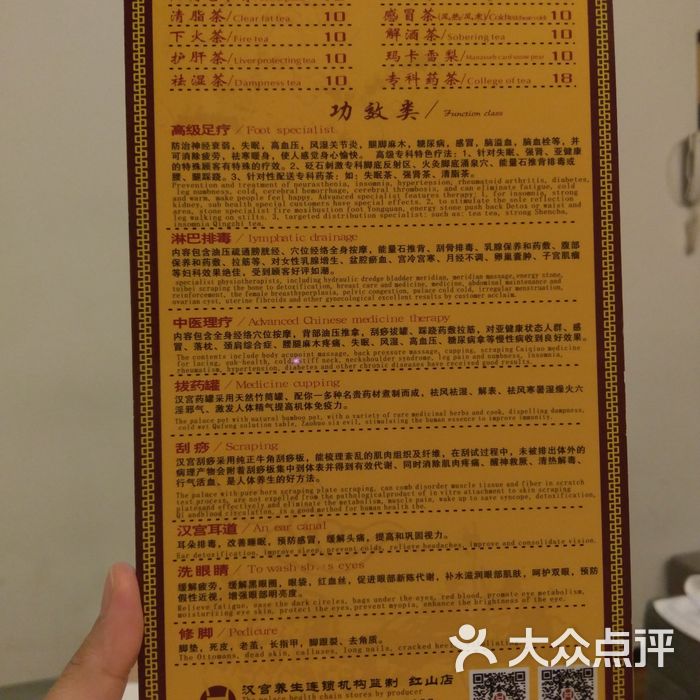 清脂茶/Clear fat tea 10
感冒茶(风热/风寒)/Cold tea 10
下火茶/Fire tea 10
解酒茶/Sobering tea 10
护肝茶/Liver protecting tea 10
玛卡雪梨/ 10
祛湿茶/Dampness tea 10
专科药茶/College of tea 18
功效类/Function class
高级足疗/Foot specialist
防治神经衰弱,失眠,高血压,风湿关节炎,腿脚麻木,糖尿病,感冒,脑溢血,脑血栓等,并
可消除疲劳,祛寒暖身,使人感觉身心愉快。 高级专科特色疗法:1、针对失眠、强肾、亚健康
的特殊顾客有特殊的疗效。2、砭石刺激专科脚底反射区、火灸脚底涌泉穴、能量石推背排毒或
腰、腿踩跷。3、针对性配送专科药茶:如:失眠茶、强肾茶、清脂茶。
Prevention and treatment of neurasthenia, insomnia, hypertension, rheumatoid arthritis, diabetes,
leg numbness, cold, cerebral hemorrhage, cerebral thrombosis, and can eliminate fatigue, cold
and warm, make people feel happy. Advanced specialist features therapy: 1, for insomnia, strong
kidney, sub health special customers have special effects. 2, to stimulate the sole reflection
area, stone specialist fire moxibustion foot Yongquan, energy stone push back Detox or waist and
leg walking on stilts. 3, targeted distribution specialist: such as: tea tea, strong Shencha,
insomnia Qingzhi tea.
淋巴排毒/Lymphatic drainage
内容包含油压疏通膀胱经、穴位经络全身按摩,能量石推背、刮骨排毒、乳腺保养和药敷、腹部
保养和药敷、拉筋等、对女性乳腺增生、盆腔瘀血、宫冷宫寒、月经不调、卵巢囊肿、子宫肌瘤
等妇科效果绝佳,受到顾客好评如潮。
specialist physiotherapists, including hydraulic dredge bladder meridian, meridian massage, energy stone,
tuibei scraping the bone to detoxification, breast care and medicine, medicine, abdominal maintenance and
reinforcement, the female breasthyperplasia, pelvic congestion, palace cold cold, irregular menstruation,
ovarian cyst, uterine fibroids and other gynecological excellent results by customer acclaim.
中医理疗/Advanced Chinese medicine therapy
内容包含全身经络穴位按摩,背部油压推拿,刮痧拔罐、踩跷药敷拉筋,对亚健康状态人群、感
冒、落枕、颈肩综合症、腰腿麻木疼痛、失眠、风湿、高血压、糖尿病拿等慢性病收到良好效果。
The contents include body acupoint massage, back pressure massage, cupping, scraping Caiqiao medicine
for lacing, sub-health, cold, stiff neck, neckshoulder syndrome, leg pain and numbness, insomnia,
rheumatism, hypertension, diabetes and other chronic diseases have received good results.
拔药罐/Medicine cupping
汉宫药罐采用天然竹筒罐、配你一多种名贵药材煮制而成、祛风祛湿、解表、祛风寒暑湿燥火六
淫邪气、激发人体精气提高机体免疫力。
The palace pot with natural bamboo pot, with a variety of rare medicinal herbs and cook, dispelling dampness,
cold wet Qufeng solution table, Zaohuo six evil, stimulating the human essence to improve immunity.
刮痧/Scraping
汉宫刮痧采用纯正牛角刮痧板,能梳理紊乱的肌肉组织及纤维,在刮试过程中,未被排出体外的
病理产物会附着刮痧板集中到体表并得到有效代谢、同时消除肌肉疼痛、醒神救厥、清热解毒、
行气活血、是人体养生的好方法。
The palace with pure horn scraping plate scraping, can comb disorder muscle tissue and fiber in scratch
test process, are not expelled from the pathological product of in vitro attachment to skin scraping
plates and effectively and eliminate the metabolism, muscle pain, wake up to save syncope, detoxification,
Qi and blood circulation, is a good method for human health the.
汉宫耳道/An ear canal
耳朵排毒,改善睡眠,预防感冒,缓解头痛,提高和巩固视力。
Ear detoxification, improve sleep, prevent colds, relieve headaches, improve and consolidate vision.
洗眼睛/To wash eyes
缓解疲劳,缓解黑眼圈,眼袋,红血丝,促进眼部新陈代谢,补水滋润眼部肌肤,呵护双眼,预防
假性近视,增强眼部明亮度。
Relieve fatigue, ease the dark circles, bags under the eyes, red blood, promote eye metabolism,
moisturizing eye skin, protect the eyes, prevent myopia, enhance the brightness of the eye.
修脚/Pedicure
脚垫,死皮,老茧,长指甲,脚跟裂、去角质。
The Ottomans, dead skin, calluses, long nails, cracked heel
汉宫养生连锁机构监制 红山店
The palace health chain stores by producer
大众点评